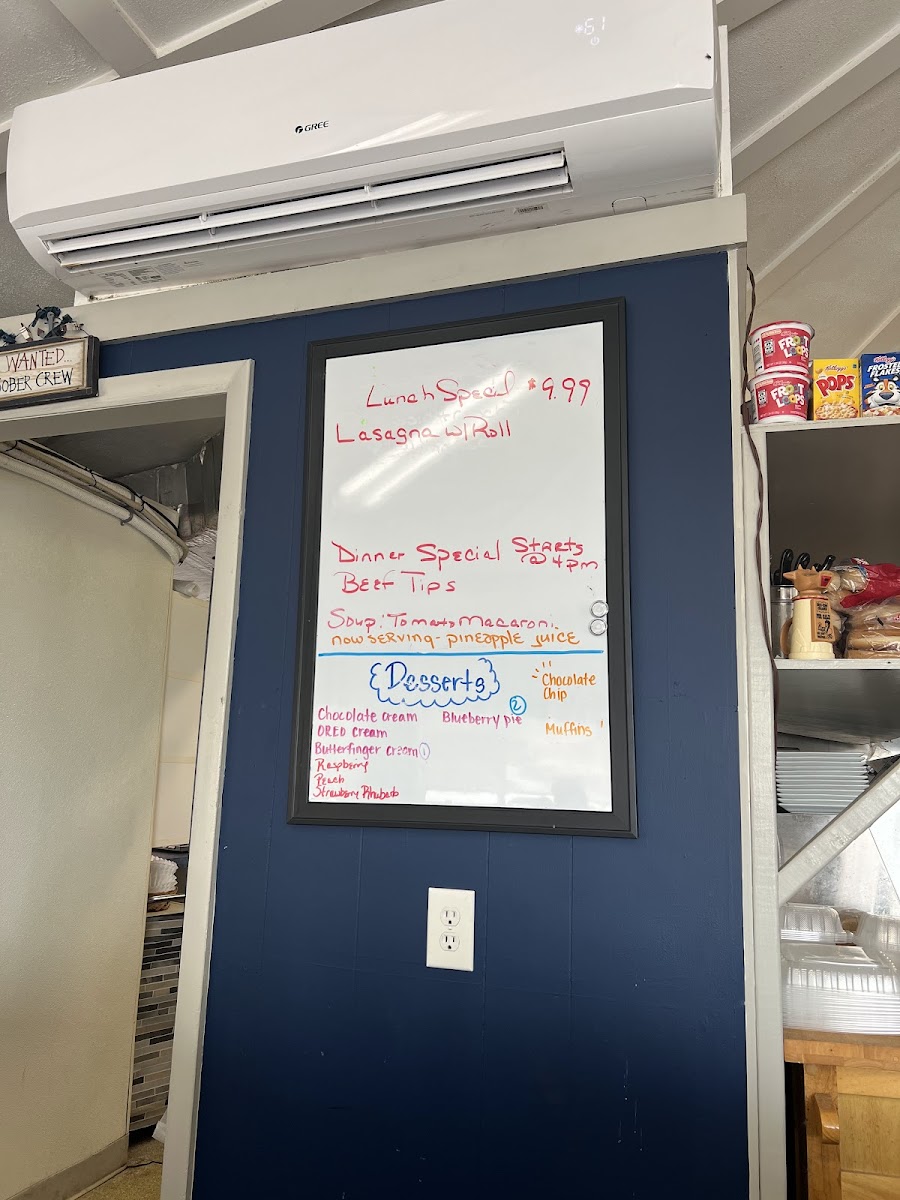 61
GREE
WANTED...
SOBER CREW
Lunch Special $9.99
Lasagna w/Roll
Dinner Special Starts @ 4pm
Beef Tips
Soup: Tomato Macaroni
now serving- pineapple juice
Desserts
Chocolate Chip
Muffins
Chocolate cream
Blueberry pie 2
OREO cream
Butterfinger cream 1
Raspberry
Peach
Strawberry Rhubarb
FROOT LOOPS
FROOT LOOPS
Kellogg's
POPS
FROSTED FLAKES